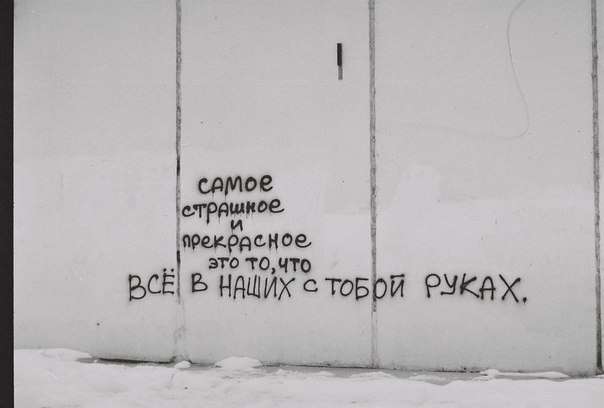 самое
страшное
и
прекрасное
это то, что
ВСЁ В НАШИХ С ТОБОЙ РУКАХ.